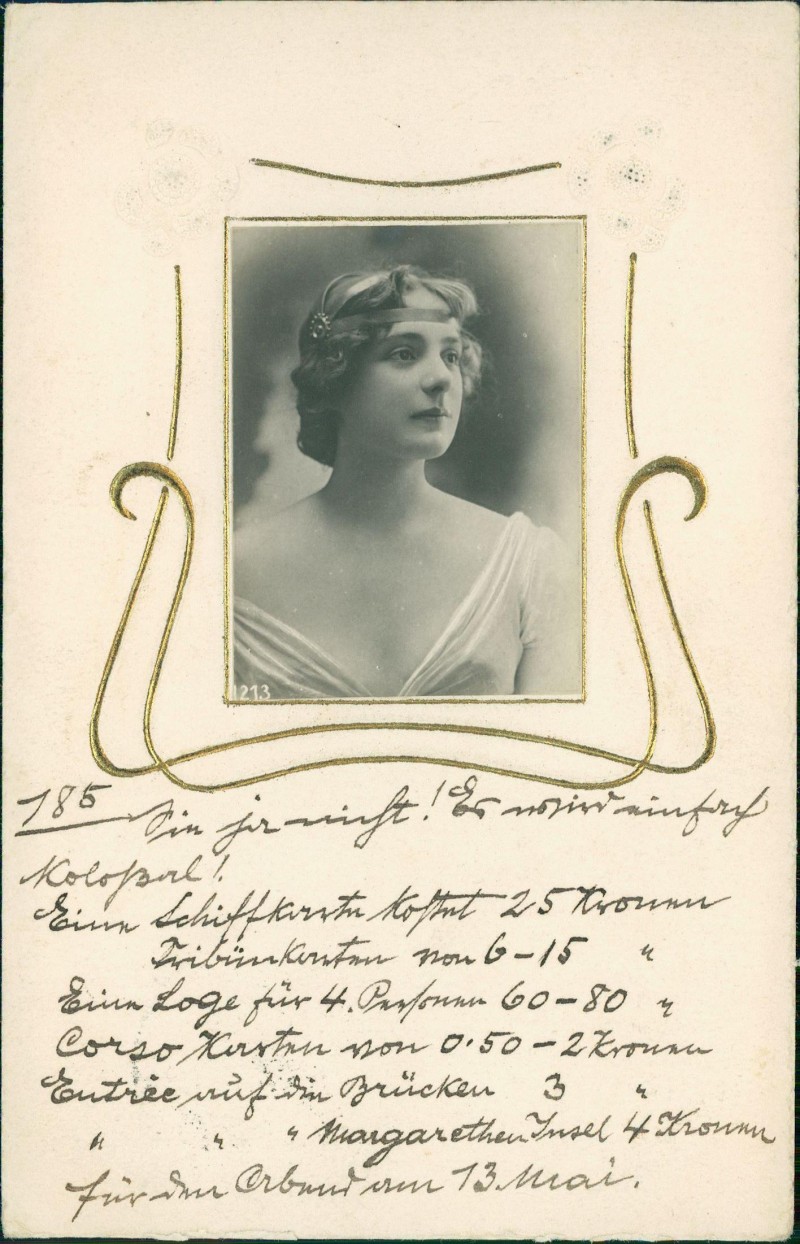 1213
185 Sie ja nicht! Es wird einfach
Koloßal!
Eine Schiffkarte kostet 25 Kronen
Tribünkarten von 6-15 "
Eine Loge für 4. Personen 60-80 "
Corso Karten von 0.50-2 Kronen
Entrée auf die Brücken 3 "
" " " Margarethen Insel 4 Kronen
für den Abend am 13. Mai.